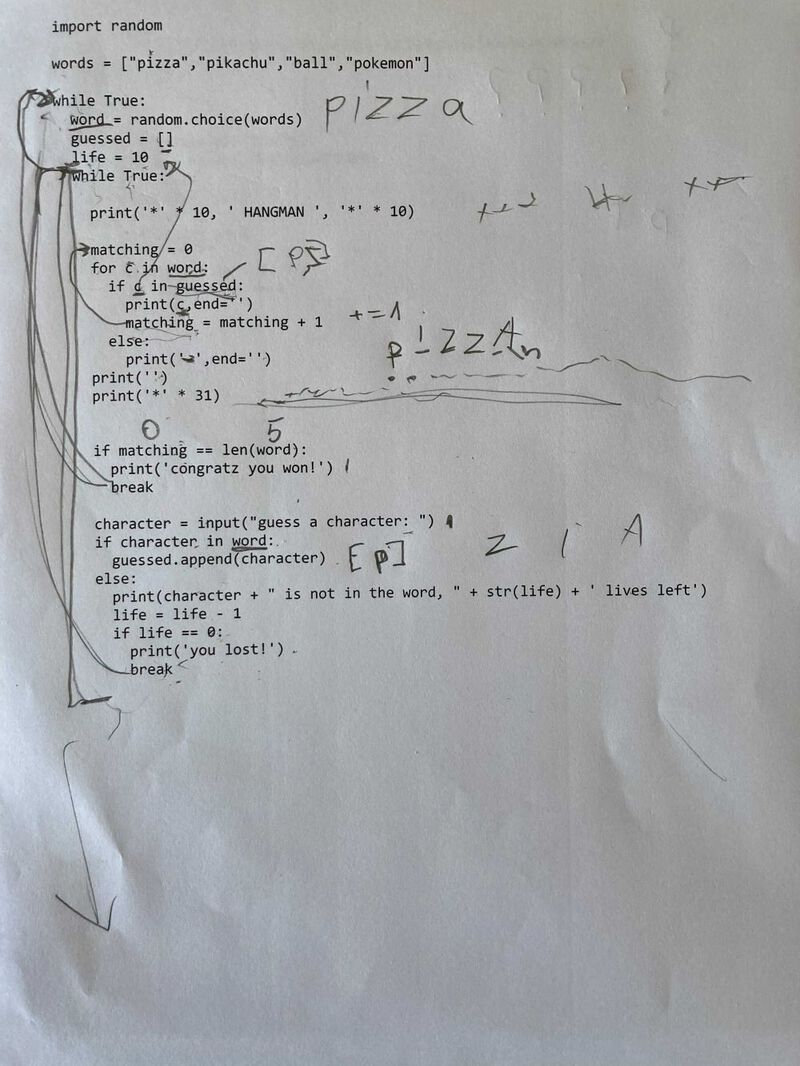 import random
words = ["pizza","pikachu","ball","pokemon"]
while True:
word = random.choice(words) pizza
guessed = []
life = 10
while True:
print('*' * 10, ' HANGMAN ', '*' * 10)
matching = 0
for c in word: [P
if c in guessed:
print(c,end='')
matching = matching + 1 +=1
else: pizzA
print('_',end='')
print('')
print('*' * 31)
0 5
if matching == len(word):
print('congratz you won!')
break
character = input("guess a character: ")
if character in word: z i A
guessed.append(character) [p]
else:
print(character + " is not in the word, " + str(life) + ' lives left')
life = life - 1
if life == 0:
print('you lost!')
break